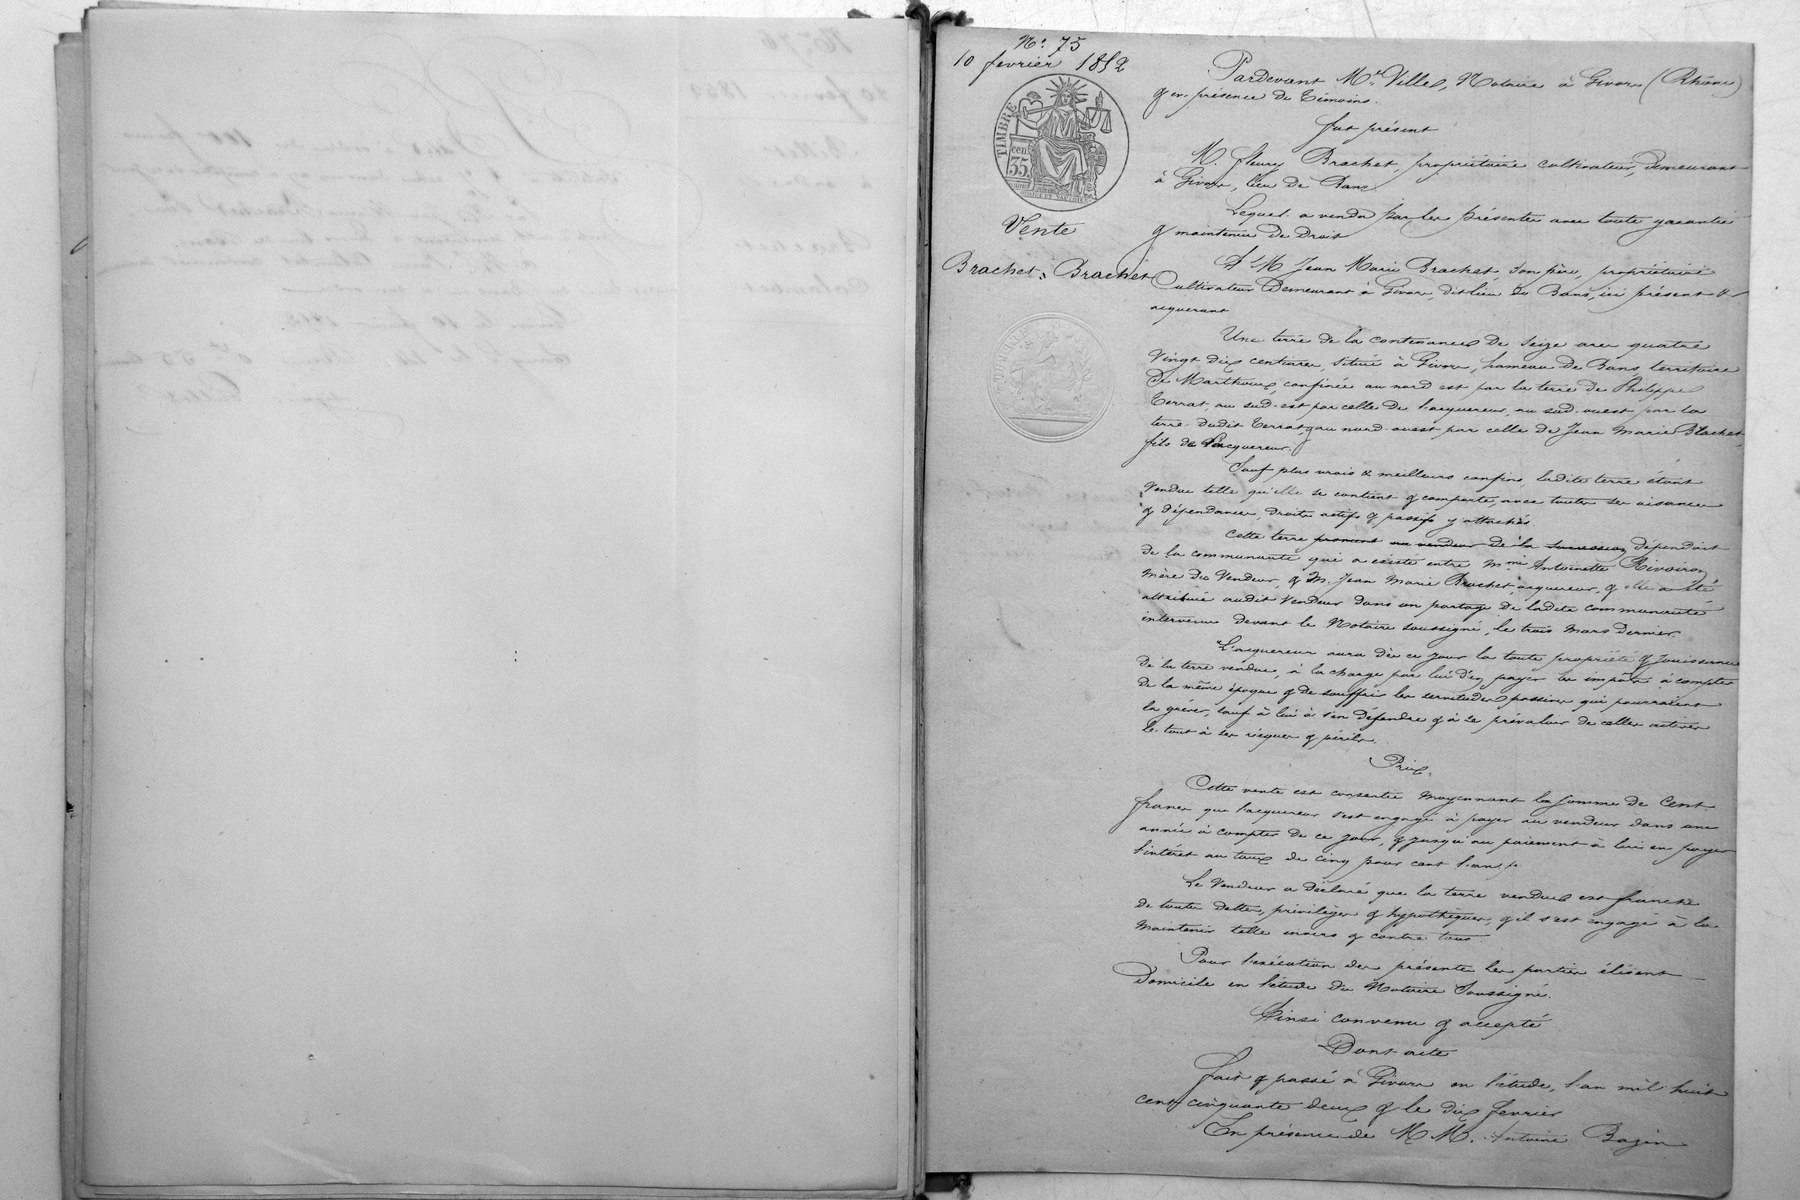 N.° 75
10 fevrier 1852
TIMBRE
cen 35
Vente
Brachet à Brachet
Pardevant M.e Villes, Notaire à Givors (Rhône)
& en présence de témoins.
fut présent
M. fleury Brachet, propriétaire cultivateur, demeurant
à Givors, lieu de Bans
Lequel a vendu par les présentes avec toute garantie
& maintenue de Droit
A M. Jean Marie Brachet, son père, propriétaire
Cultivateur Demeurant à Givors, dit lieu de Bans, ici présent &
acquerant
Une terre de la contenance de seize ares quatre
Vingt dix centiares, située à Givors, hameau de Bans territoire
de confinée au nord est par la terre de Philippe
Terrat, au sud-est par celle de l'acquereur, au sud-ouest par la
terre dudit Terrat, & au nord-ouest par celle de Jean Marie Brachet,
fils de l'acquereur.
Sauf plus vrais & meilleurs confins, ladite terre étant
Vendue telle qu'elle se contient & comporte, avec toutes ses aisances
& dépendances, droits actifs & passifs y attachés.
Cette terre provient au vendeur de la succession dépendait
de la communauté qui a existé entre Mme Antoinette Rivoiron
mère du Vendeur, & M. Jean Marie Brachet, acquereur, & elle a été
attribuée audit Vendeur dans un partage de ladite communauté
intervenu devant le Notaire soussigné, le trois mars dernier.
L'acquereur aura dès ce jour la toute propriété & jouissance
de la terre vendue, à la charge par lui d'en payer les impôts à compter
de la même époque & de souffrir les servitudes passives qui pourraient
la gréver, sauf à lui à s'en défendre & à se prévaloir de celles actives
le tout à ses risques & périls.
Prix.
Cette vente est consentie moyennant la somme de Cent
francs que l'acquereur s'est engagé à payer au vendeur dans une
année à compter de ce jour, & jusqu'au paiement à lui en payer
l'intérêt au taux de cinq pour cent l'an.
Le Vendeur a déclaré que la terre vendue est franche
de toutes dettes, privilèges & hypothèques, & il s'est engagé à la
maintenir telle envers & contre tous.
Pour l'exécution des présentes les parties élisent
Domicile en l'étude du Notaire Soussigné.
Ainsi convenu & accepté
Dont acte
fait & passé à Givors en l'étude, l'an mil huit
cent cinquante deux & le dix fevrier
En présence de MM. Antoine Bazin